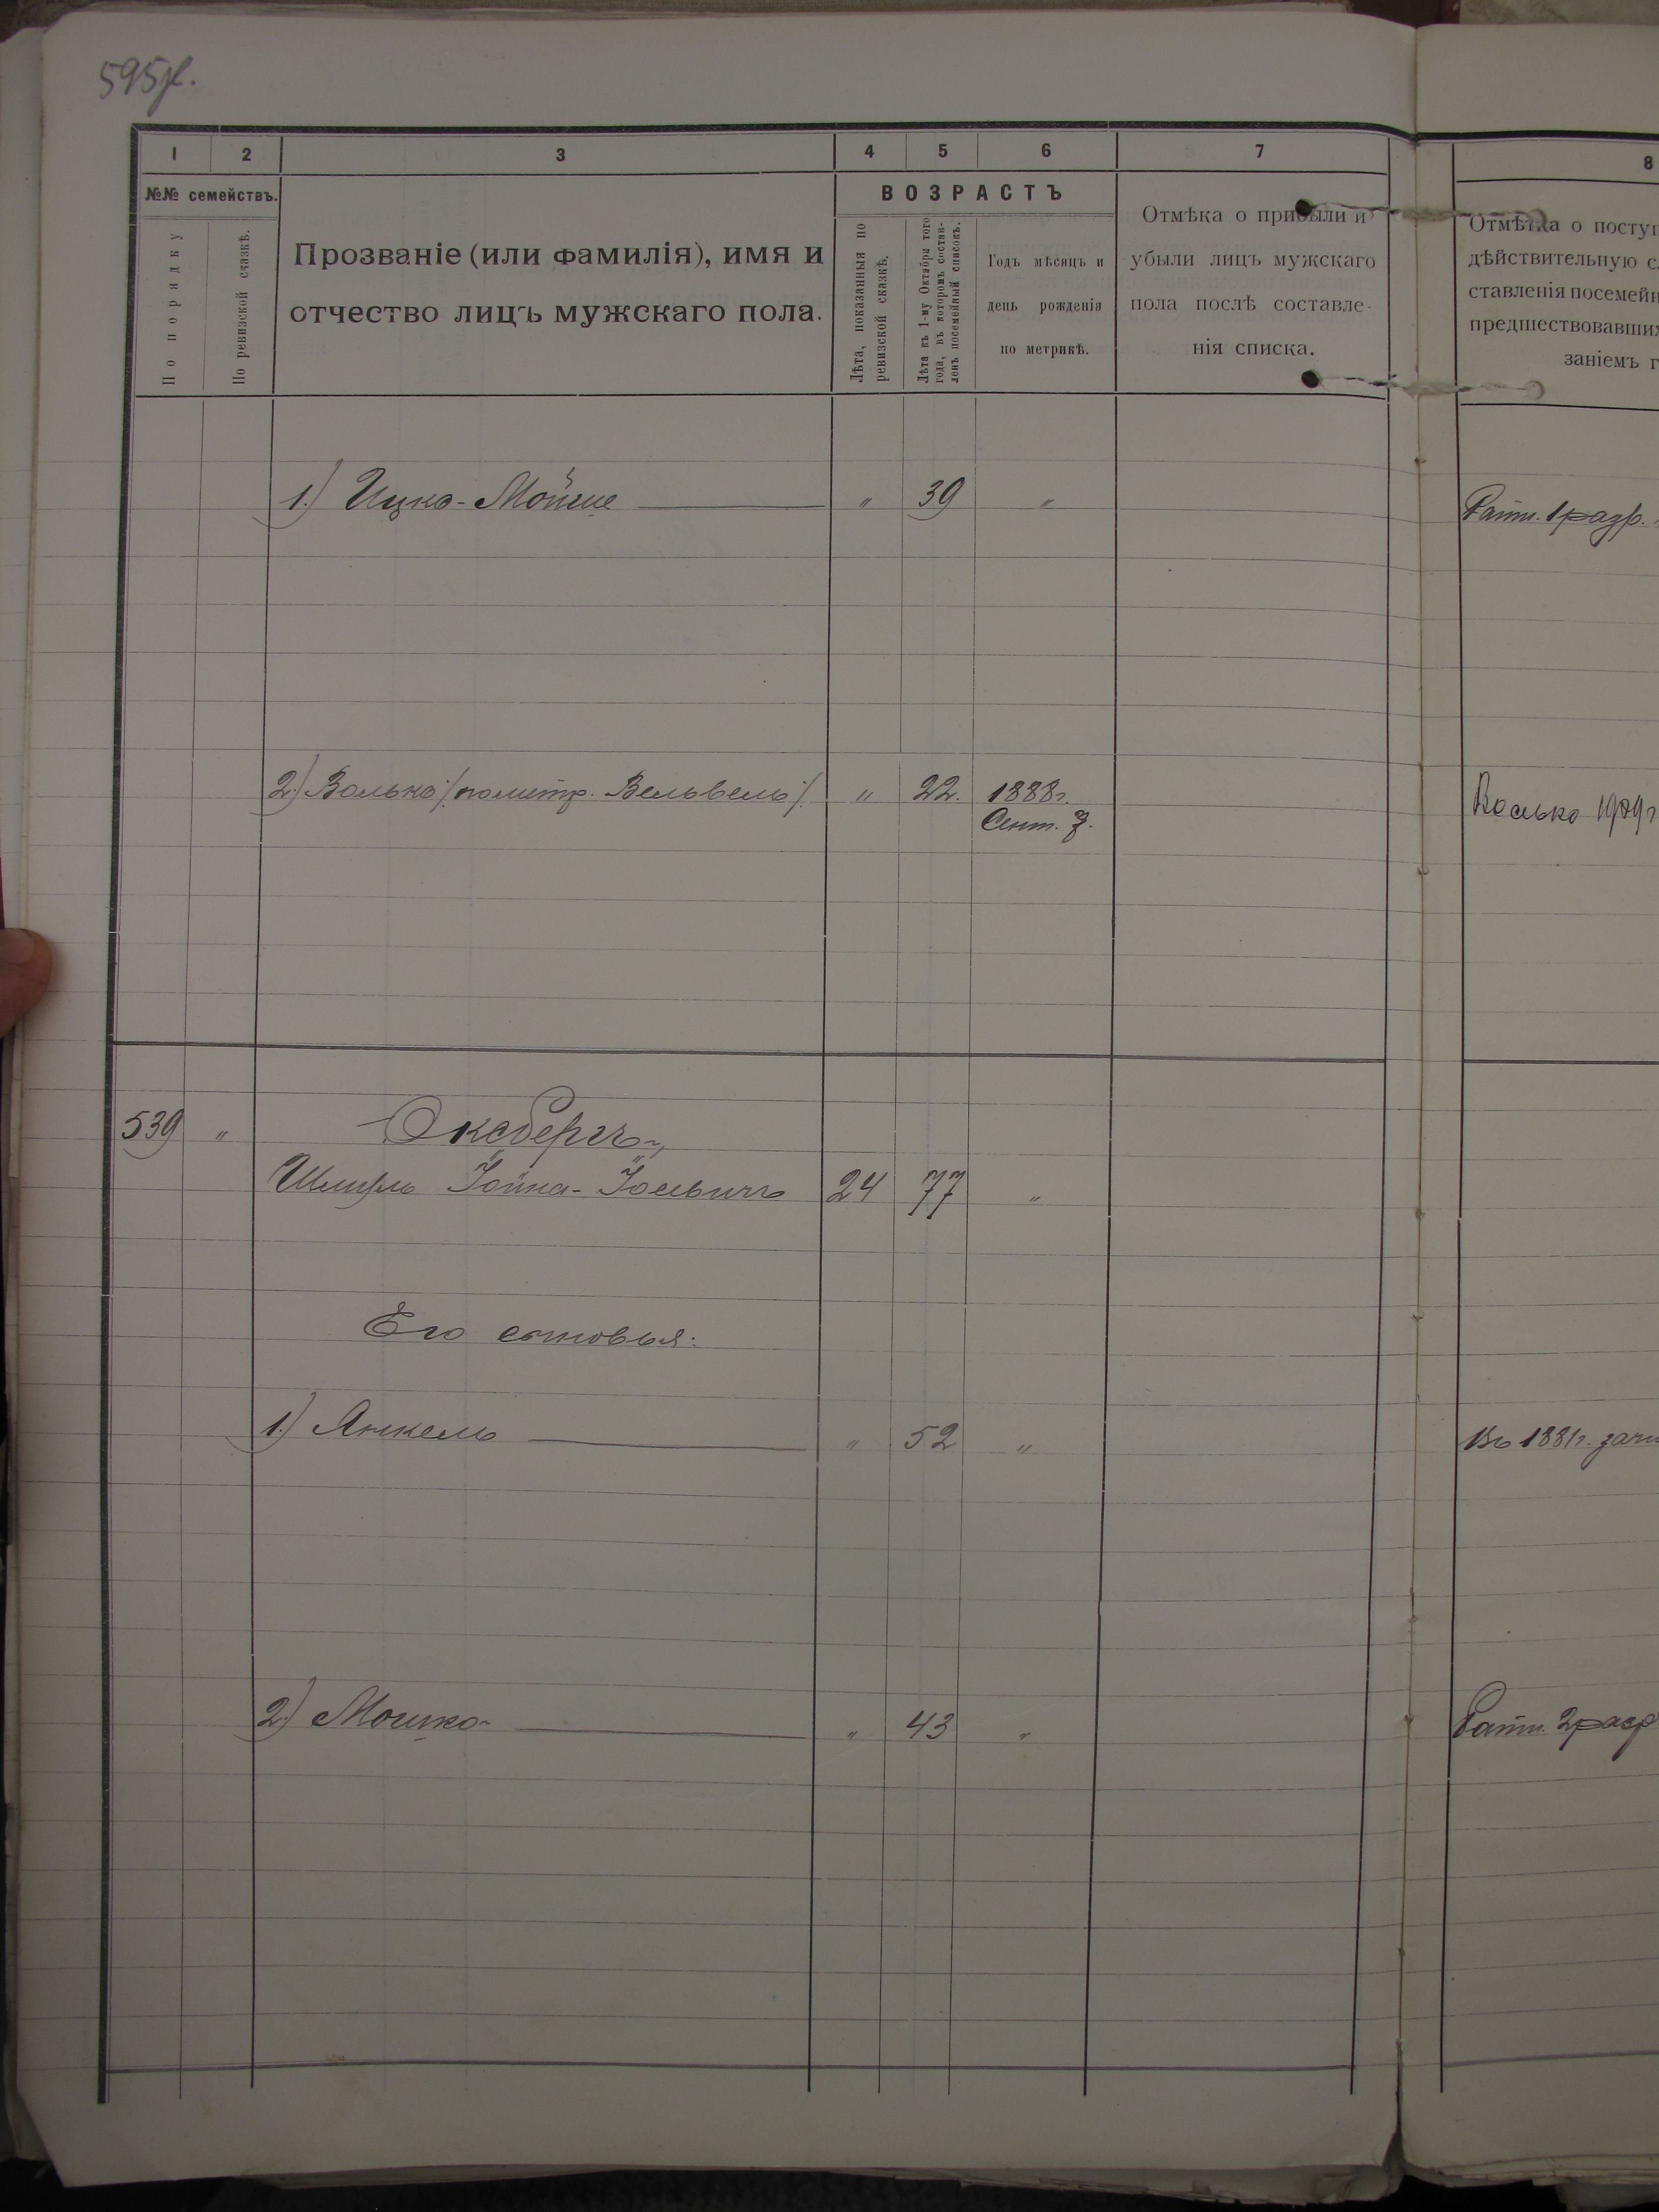 595 ж.
1 2 3 4 5 6 7 8
№№ семействъ.
По порядку
По ревизской сказкѣ.
Прозваніе (или фамилія), имя и
отчество лицъ мужскаго пола.
ВОЗРАСТЪ
Лѣта, показанныя по
ревизской сказкѣ.
Лѣта къ 1-му Октября того
года, въ которомъ состав-
ленъ посемейный списокъ.
Годъ мѣсяцъ и
день рожденія
по метрикѣ.
Отмѣка о прибыли и
убыли лицъ мужскаго
пола послѣ составле-
нія списка.
Отмѣтка о поступ
дѣйствительную с
ставленія посемейн
предшествовавших
заніемъ г
1.) Ицко-Мойше " 39 " Ратн. 1 разр.
2.) Волько /: по метр. Вельвель :/ " 22. 1888 г.
Сент. 7.
Волько 1909 г
539 " Оксбергъ,
Шмуль Іойна-Іосьвичъ 24 77 "
Его сыновья:
1.) Янкель " 52 " Въ 1881 г. зачи
2.) Мошко " 43 " Ратн. 2 разр